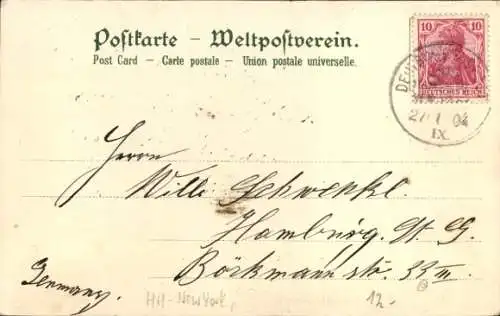 Postkarte – Weltpostverein.
Post Card – Carte postale – Union postale universelle.
10 10
DEUTSCHES REICH
27/1 04
IX.
Herrn
Willi Schwenkl.
Hamburg. St. G.
Böckmannstr. 33 III.
Germany.
HH-New York,
12.-